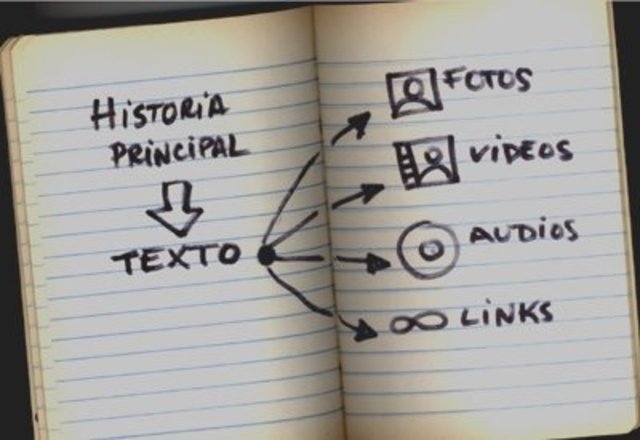 HiSTORiA
PRiNCiPAL
TEXTO
FOTOS
ViDEOS
AUDiOS
LiNKS